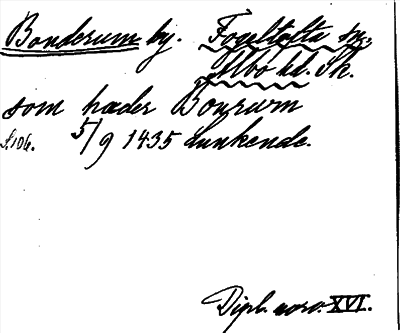 Bonderum by. Fogeltofta sn.
Albo hd. Sk.
som hæder Bonrum
S. 106. 5/9 1435 Lunkende.
Dipl. norv. XVI.